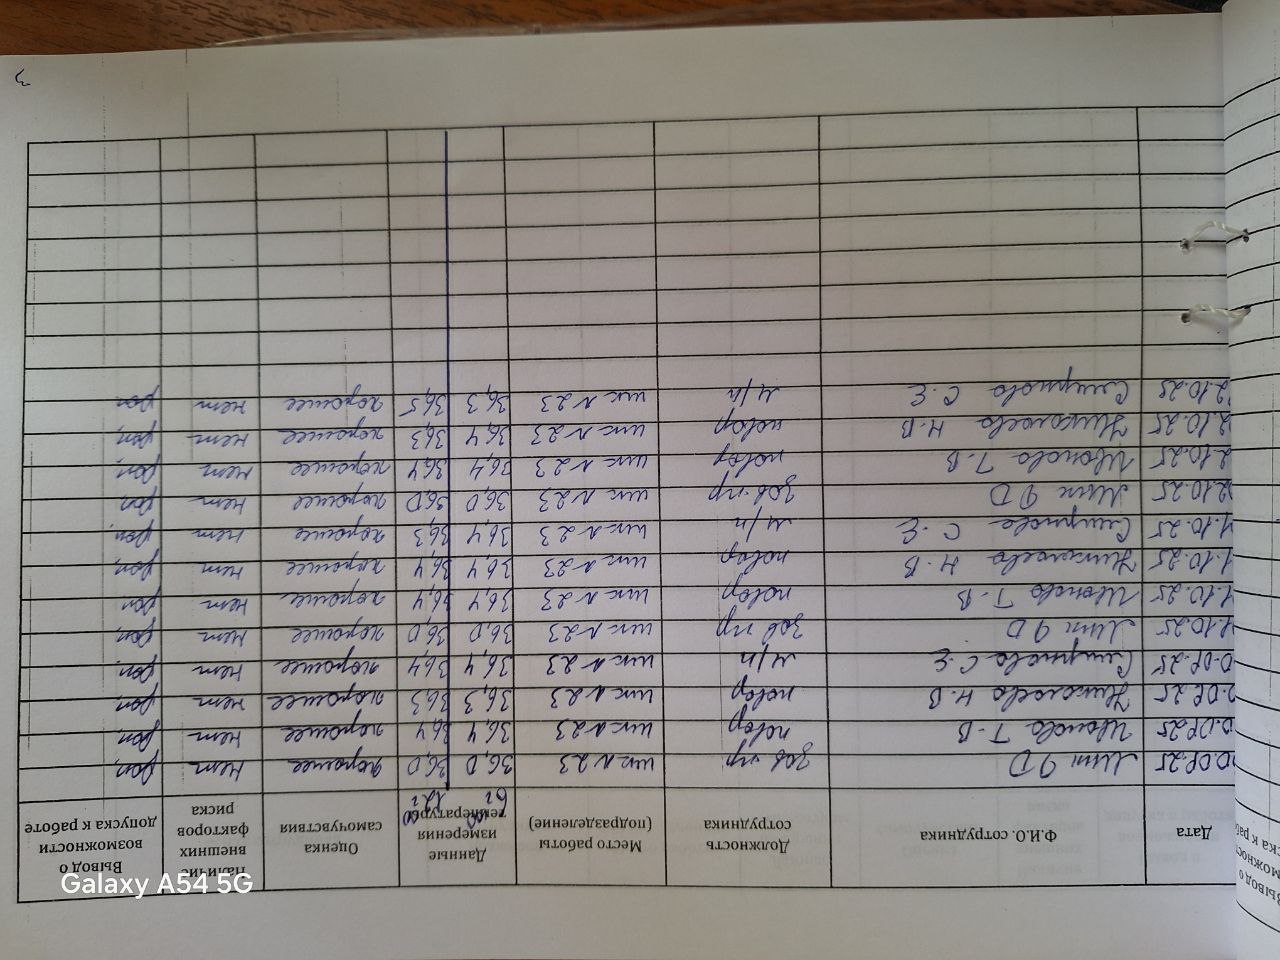 Дата Ф.И.О. сотрудника Должность сотрудника Место работы (подразделение) Данные измерения температуры Оценка самочувствия Наличие внешних факторов риска Вывод о возможности допуска к работе
6:00 12:00
0.09.25 Мит Я О зав. пр шк. №23 36,0 36,0 хорошее нет доп.
0.09.25 Иванова Т. В повар шк. №23 36,4 36,4 хорошее нет доп.
0.09.25 Николаева Н. В повар шк. №23 36,3 36,3 хорошее нет доп.
0.09.25 Смирнова С. Е м/п шк. №23 36,4 36,4 хорошее нет доп.
1.10.25 Мит Я О зав пр шк. №23 36,0 36,0 хорошее нет доп.
1.10.25 Иванова Т. В повар шк. №23 36,4 36,4 хорошее нет доп
1.10.25 Николаева Н. В повар шк. №23 36,4 36,4 хорошее нет доп.
1.10.25 Смирнова С. Е м/п шк. №23 36,4 36,3 хорошее нет доп.
2.10.25 Мит Я О зав. пр шк. №23 36,0 36,0 хорошее нет доп
2.10.25 Иванова Т. В повар шк. №23 36,4 36,4 хорошее нет доп.
2.10.25 Николаева Н. В повар шк. №23 36,4 36,3 хорошее нет доп.
2.10.25 Смирнова С. Е м/п шк. №23 36,3 36,5 хорошее нет доп
Galaxy A54 5G